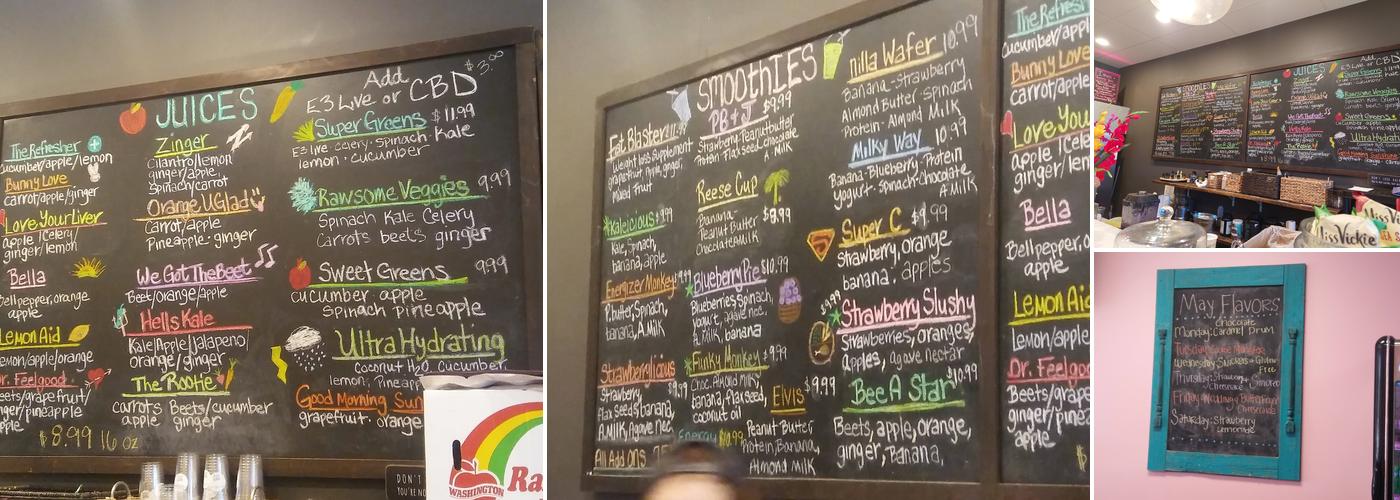 JUICES
The Refresher
cucumber/apple/lemon
Bunny Love
carrot/apple/ginger
Love Your Liver
apple/celery/
ginger/lemon
Bella
Bellpepper, orange
apple
Lemon Aid
lemon/apple/orange
Dr. Feelgood
Beets/grapefruit/
ginger/pineapple
apple
$8.99 16 oz
Zinger
Cilantro/lemon
ginger/apple
Spinach/carrot
Orange U Glad
Carrot/apple
Pineapple-ginger
We Got The Beet
Beet/orange/apple
Hells Kale
Kale/Apple/Jalapeno/
orange/ginger
The Rootie
carrots Beets/cucumber
apple ginger
Add
E3 Live or CBD $3.00
Super Greens $11.99
E3 live-celery-Spinach-Kale
lemon-cucumber
Rawsome Veggies 9.99
Spinach Kale Celery
Carrots beets ginger
Sweet Greens 9.99
cucumber apple
Spinach pineapple
Ultra Hydrating
Coconut H2O Cucumber
lemon, Pineapp
Good Morning Sun
grapefruit-orange
DON'T
YOU'RE NO
WASHINGTON
Ra
SMOOTHIES
Fat Blaster
weight loss supplement
grapefruit, Apple, ginger,
mixed fruit
Kaleicious $9.99
Kale, Spinach,
banana, apple
Energizer Monkey
P.butter, Spinach,
banana, A.milk
Strawberrylicious
$9.99
Strawberry,
Flax seeds, banana,
A.Milk, Agave nec.
All Add ons
PB+J $9.99
Strawberry, Peanut butter
Protein, Flax seed, Chocolate
A. Milk
Reese Cup
$8.99
Banana-
Peanut Butter
Chocolate A.Milk
Blueberry Pie $10.99
Blueberries Spinach,
yogurt, agave nec.
A. Milk, banana
Funky Monkey $9.99
Choc. Almond milk,
banana, flax seed,
coconut oil
Energy $10.99
Elvis $9.99
Peanut Butter,
Protein, Banana,
Almond Milk
nilla Wafer 10.99
Banana-Strawberry
Almond Butter-Spinach
Protein-Almond Milk
Milky Way 10.99
Banana-Blueberry-Protein
yogurt-Spinach-Chocolate
A Milk
Super C $9.99
Strawberry, orange
banana, apples
Strawberry Slushy
$9.99
Strawberries, oranges,
apples, agave nectar
Bee A Star $10.99
Beets, apple, orange,
ginger, Banana,
The Refresh
Cucumber/app
Bunny Love
carrot/apple
Love You
apple/Cele
ginger/lem
Bella
Bellpepper, o
apple
Lemon Aid
Lemon/apple
Dr. Feelgoo
Beets/grape
ginger/pinea
apple
Miss Vickie
May Flavors
Chocolate
Monday: Caramel Drum
Wednesday: Snickers - Gluten
Free
Thursday: Strawberry
Cheesecake
Cheesecake
Saturday: Strawberry
Lemonade